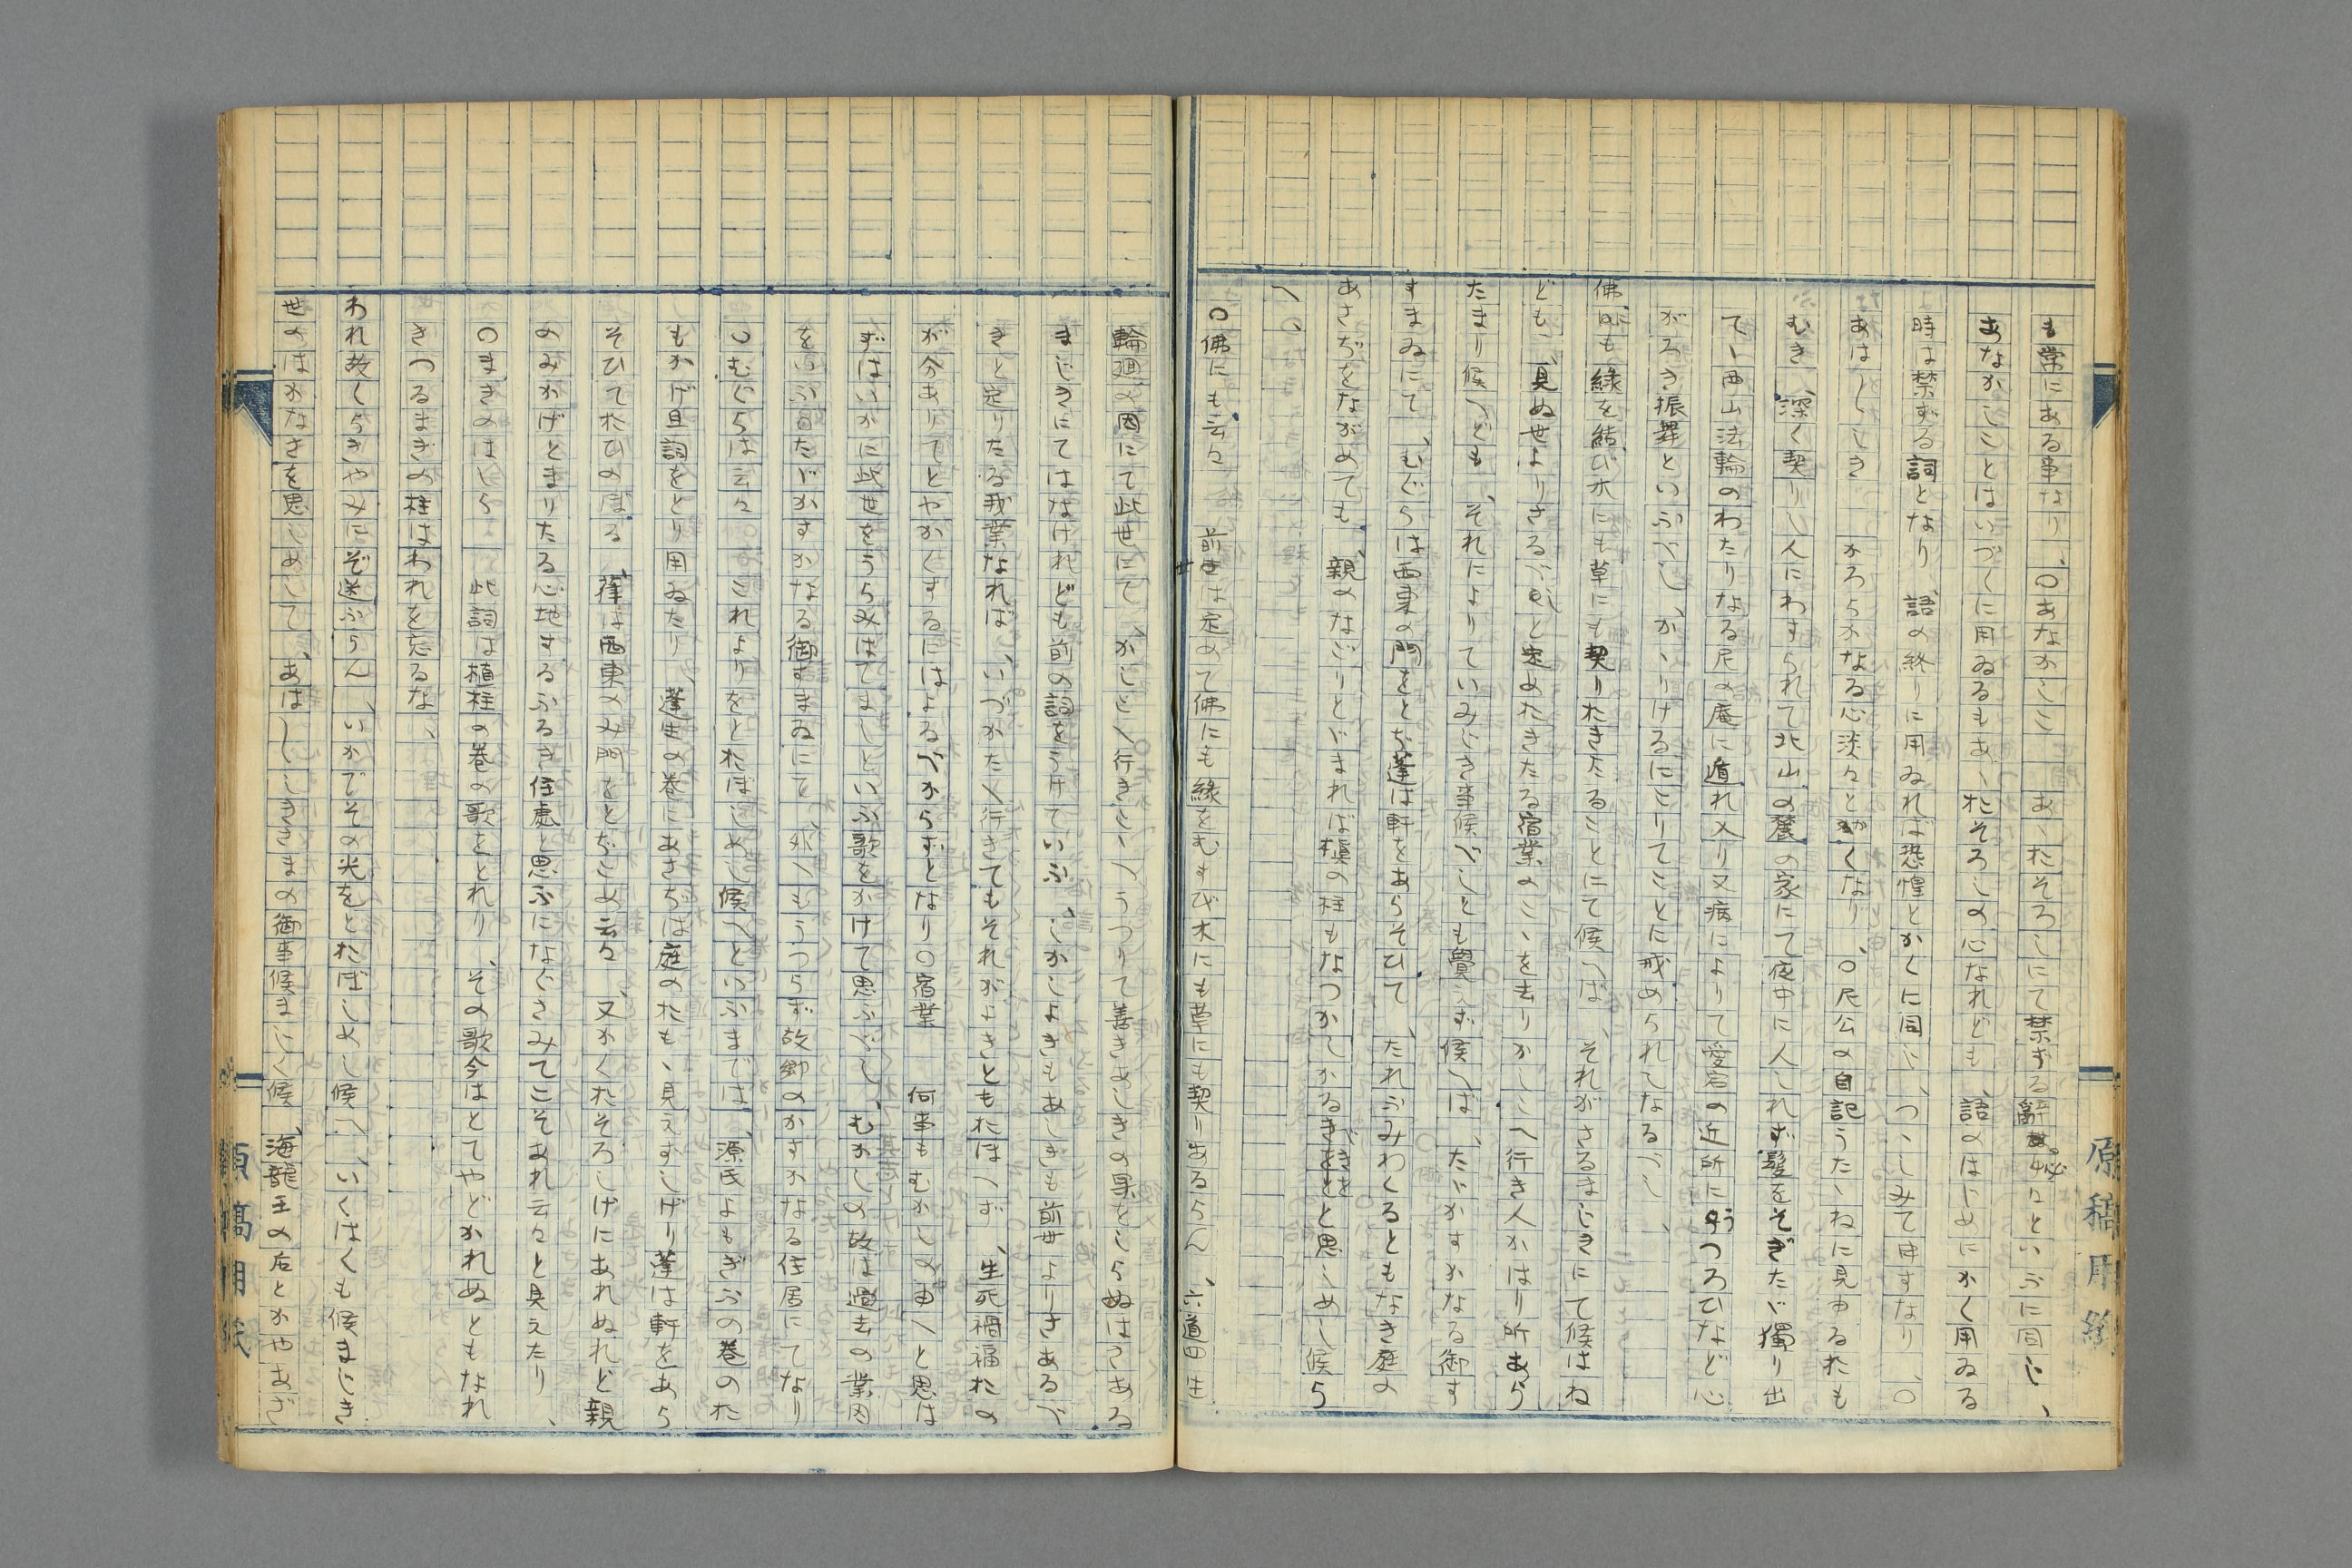 も常にある事なり、〇あなかしこ　あゝおそろしにて禁ずる辭あゝ秘々といふに同じ、
あなかしことはいづくに用ゐるもあゝおそろしの心なれども、語のはじめにかく用ゐる
時は禁ずる詞となり、語の終りに用ゐれば恐惶とかくに同じ、つゝしみて申すなり、〇
あはしき　かろらかなる心淡々とかくなり、〇尼公の自記うたゝねに見ゆるおも
むき、深く契りし人にわすられて北山の麓の家にて夜中に人しれず髮をそぎたゞ獨り出
て、西山法輪のわたりなる尼の庵に遁れ入り又病によりて愛宕の近所にうつろひなど心
がろき振舞といふべし、かゝりけるにこりてことに戒められしなるべし、
佛にも緣を結び木にも草にも契りおきたることにて候へば、それがさるまじきにて候はね
ども、見ぬ世よりさるべしと定めおきたる宿業のこゝを去りかしこへ行き人かはり所あら
たまり候へども、それによりていみじき事候べしとも覺えず候へば、たゞかすかなる御す
まゐにて、むぐらは西東の門をとぢ蓬は軒をあらそひて、たれふみわくるともなき庭の
あさぢをながめても、親のなごりとゞまれば槇の柱もなつかしかるべきをと思しめし候ら
へ、
〇佛にも云々　前世は定めて佛にも緣をむすび木にも草にも契りあるらん、六道四生
輪廻の因にて此世にて、かしこへ行きこゝへうつりて善きあしきの果をしらぬはさある
まじきにてはなけれども前の詞をうけていふ、しかしよきもあしきも前世よりさあるべ
きと定りたる我業なれば、いづかたへ行きてもそれがよきともおぼへず、生死禍福おの
が分ありてとやかくするにはよるべからずとなり〇宿業　何事もむかしの由へと思は
ずはいかに此世をうらみはてましといふ歌をかけて思ふべし、むかしの故は過去の業因
をいふ〇たゞかすかなる御すまゐにて、外へもうつらず故鄕のかすかなる住居にてなり
〇むぐらは云々　これよりをとおぼしめし候へといふまでは、源氏よもぎふの卷のお
もかげ且詞をとり用ゐたり、蓬生の卷にあさぢは庭のおもゝ見えずしげり蓬は軒をあら
そひておひのぼる、葎は西東のみ門をとぢこめ云々、又かくおそろしげにあれぬれど親
のみかげとまりたる心地するふるき住處と思ふになぐさみてこそあれ云々と見えたり、
〇まきのはしら　此詞は植柱の卷の歌をとれり、その歌今はとてやどかれぬともなれ
きつるまきの柱はわれを忘るな、
われ故くらきやみにぞ迷ふらん、いかでその光をとおぼしめし候へ、いくはくも候まじき
世のはかなさを思しめして、あはしゝしきさまの御事候まじく候、海龍王の后とかやあざ
原稿用紙
原稿用紙